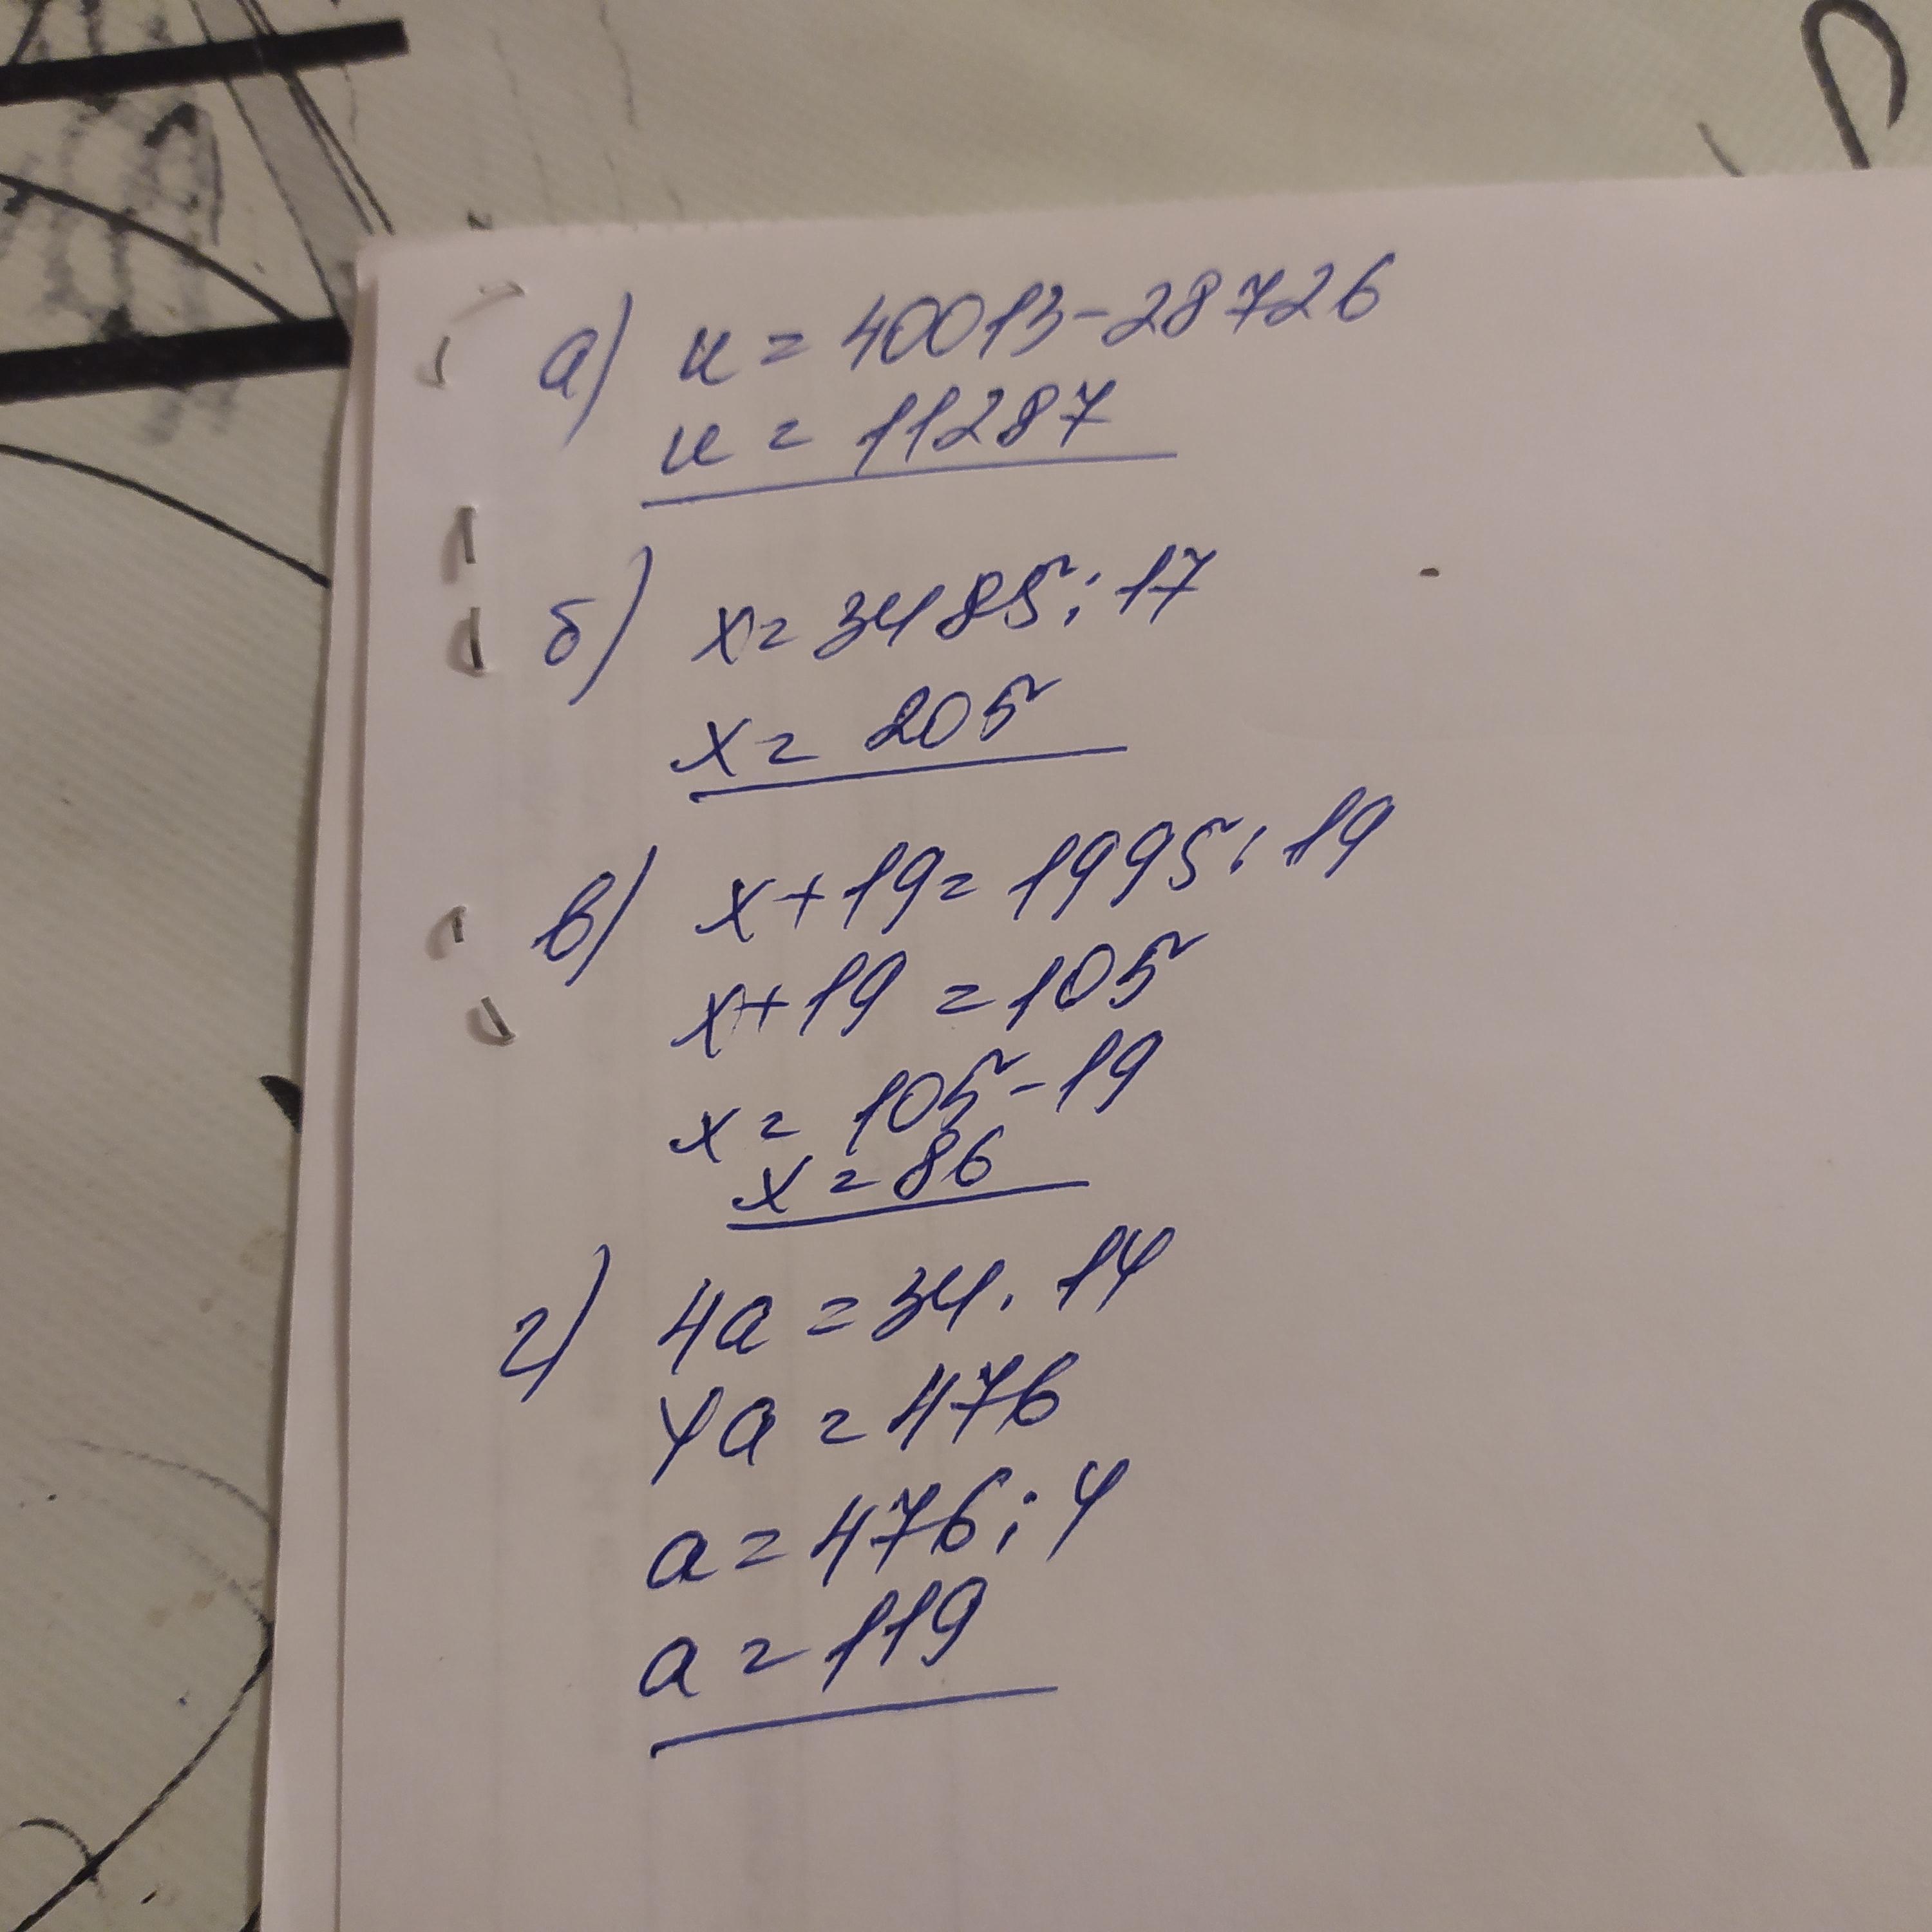 а) и = 40013-28726
и = 11287
б) x = 3485:17
x = 205
в) x+19=1995:19
x+19 = 105
x = 105-19
x = 86
г) 4a = 34.14
4a = 476
a = 476:4
a = 119